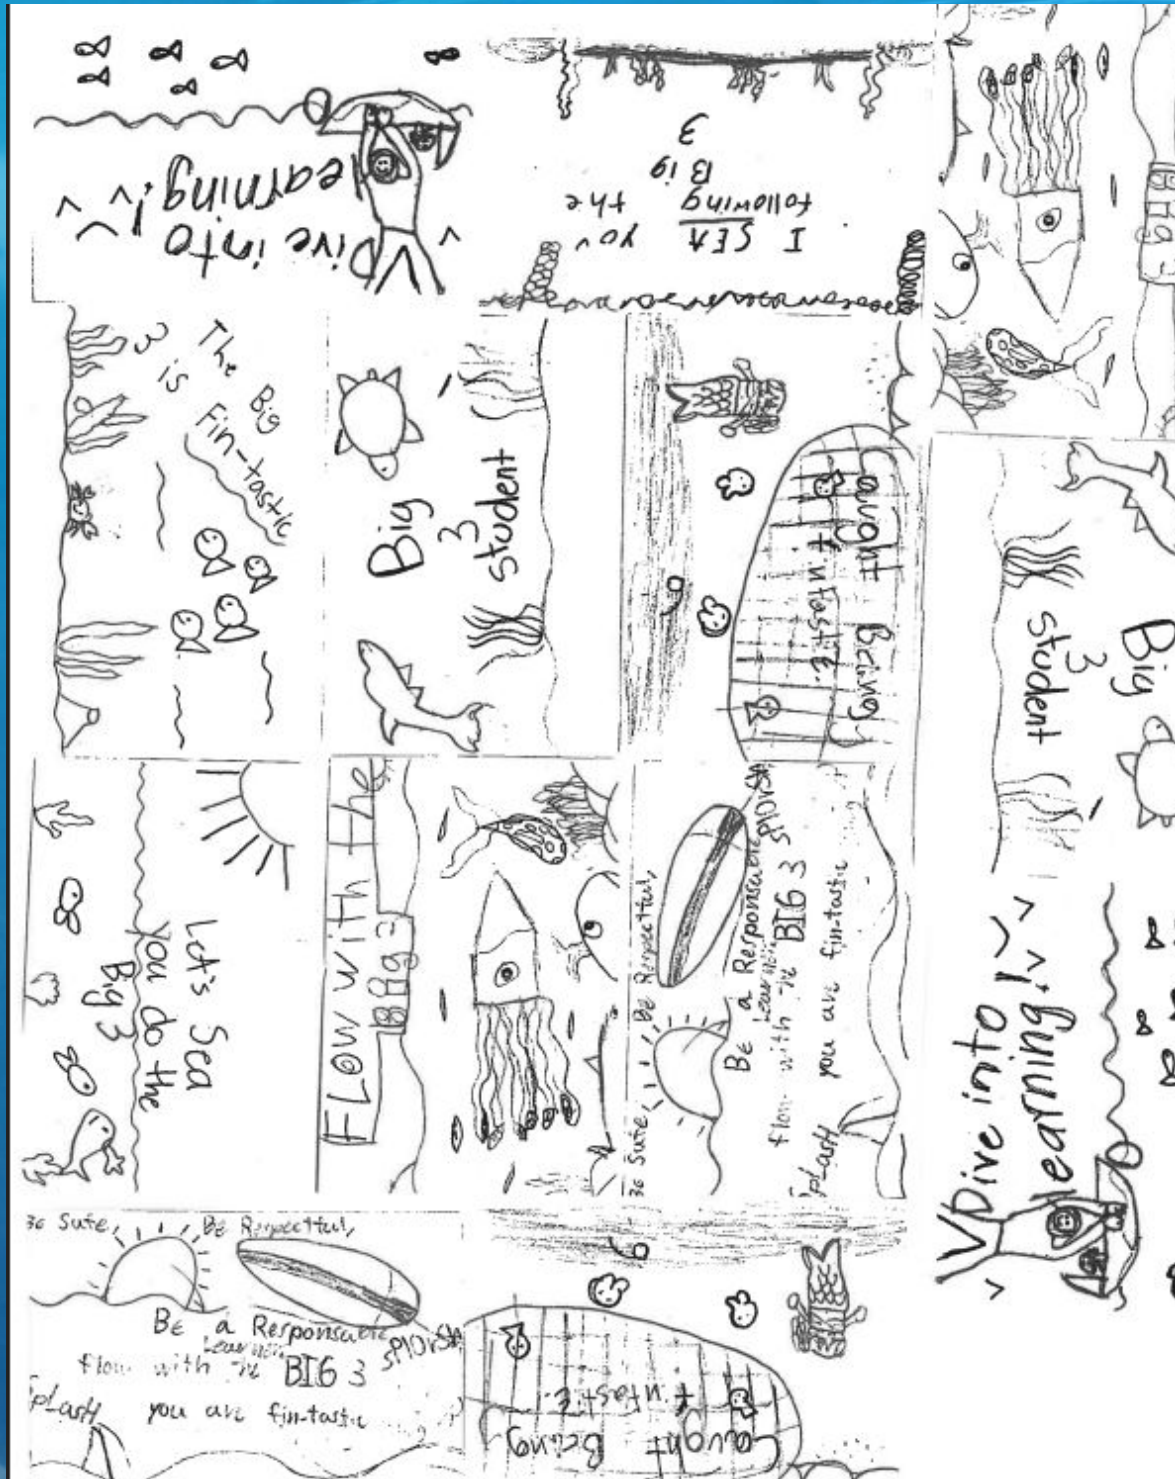 Dive into
learning!
I SEA you
following the
Big
3
Big 3
The Big
3 is
Fin-tastic
Big
3
student
Caught Being
fintastic.
Big
3
student
Let's Sea
You do the
Big 3
FLOW with the
Big 3
Be Respectful,
BE a Responsable
Learner
flow with the BIG 3
SPlash you are fin-tastic
Dive into
learning!
Be Respectful,
BE a Responsable
Learner
flow with the BIG 3
SPlash you are fin-tastic
Caught Being
fintastic.